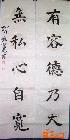 有容德乃大
無私心自寬